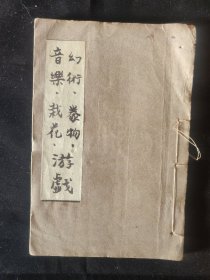 幻術·豢物·游戲
音樂·栽花·